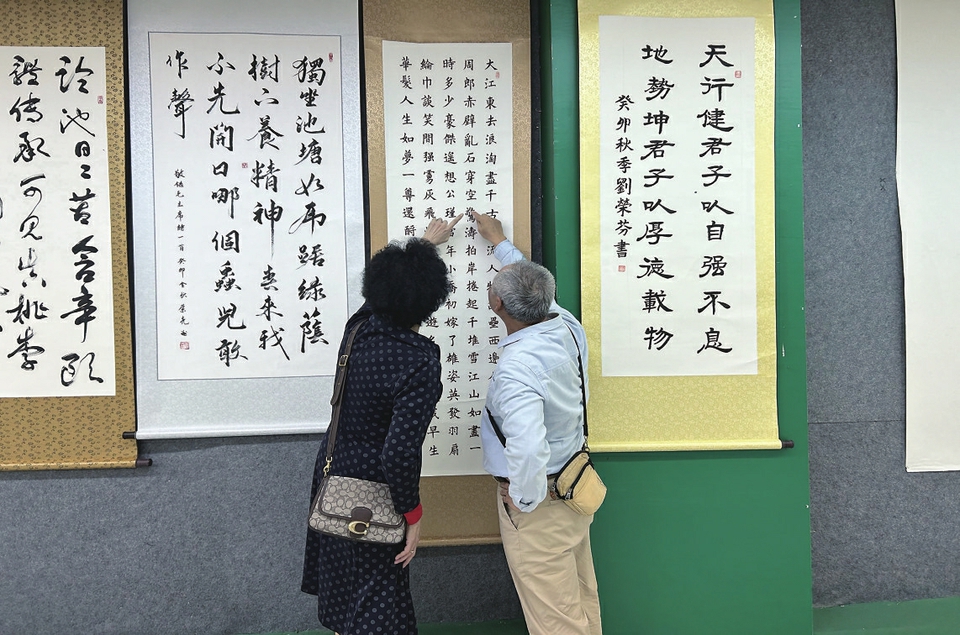 天行健君子以自强不息
地勢坤君子以厚德載物
癸卯秋季劉榮芬書
大江東去浪淘盡千古流人物壘西邊
周郎赤壁亂石穿空驚濤拍岸捲起千堆雪江山如畫一
時多少豪傑遙想公瑾當年小喬初嫁了雄姿英發羽扇
綸巾談笑間强虜灰飛遊早生
華髮人生如夢一尊還酹
獨坐池塘如虎踞綠蔭
樹下養精神春來我
不先開口哪個蟲兒敢
作聲
敬錄毛主席詩一首癸卯金秋
池日日苦含辛
傳承可見桃李